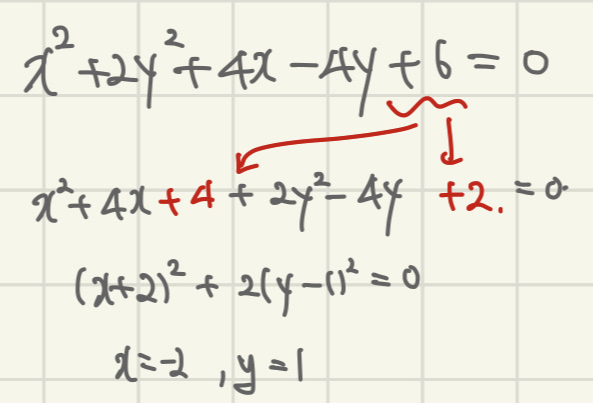 x² + 2y² + 4x - 4y + 6 = 0
x² + 4x + 4 + 2y² - 4y + 2. = 0
(x+2)² + 2(y-1)² = 0
x = -2 , y = 1